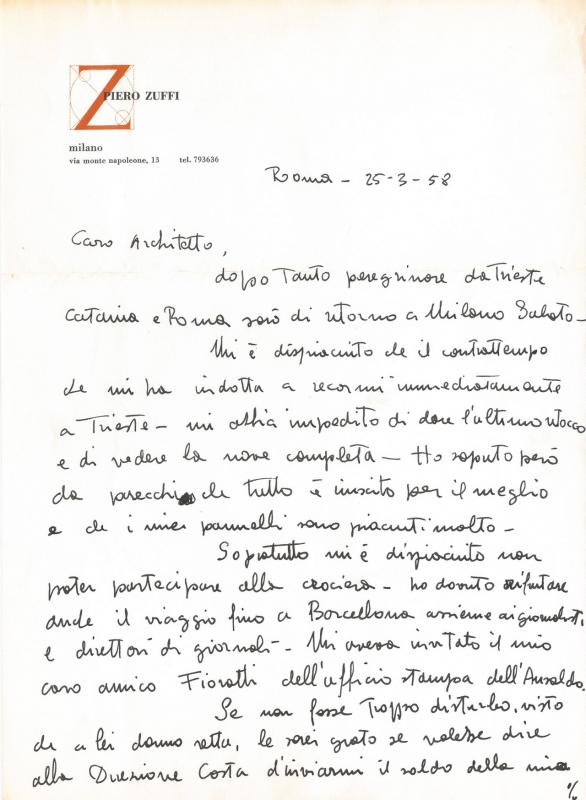 Z
PIERO ZUFFI
milano
via monte napoleone, 13 tel. 793636
Roma - 25-3-58
Caro Architetto,
dopo tanto peregrinare da Trieste
Catania e Roma sarò di ritorno a Milano Sabato -
Mi è dispiaciuto che il contrattempo
che mi ha indotto a recarmi immediatamente
a Trieste - mi abbia impedito di dare l'ultimo ritocco
e di vedere la nave completa - Ho saputo però
da parecchi che tutto è riuscito per il meglio
e che i miei pannelli sono piaciuti molto -
Sopratutto mi è dispiaciuto non
poter partecipare alla crociera - ho dovuto rifiutare
anche il viaggio fino a Barcellona assieme ai giornalisti
e direttori di giornali - Mi aveva invitato il mio
caro amico dell'ufficio stampa dell'Ansaldo.
Se non fosse troppo disturbo, visto
che a lei danno retta, le sarei grato se volesse dire
alla Direzione Costa d'inviarmi il saldo della mia